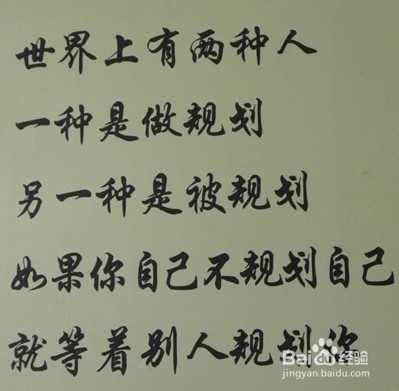 世界上有两种人
一种是做规划
另一种是被规划
如果你自己不规划自己
就等着别人规划你
Bai 经验
jingyan.baidu.com